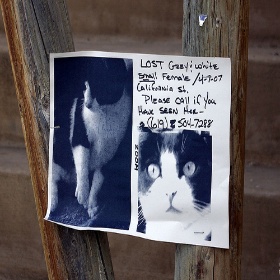 LOST Grey & White
Small Female 4-7-07
California St.
Please call if you
Have Seen Her—
(619) 504-7288